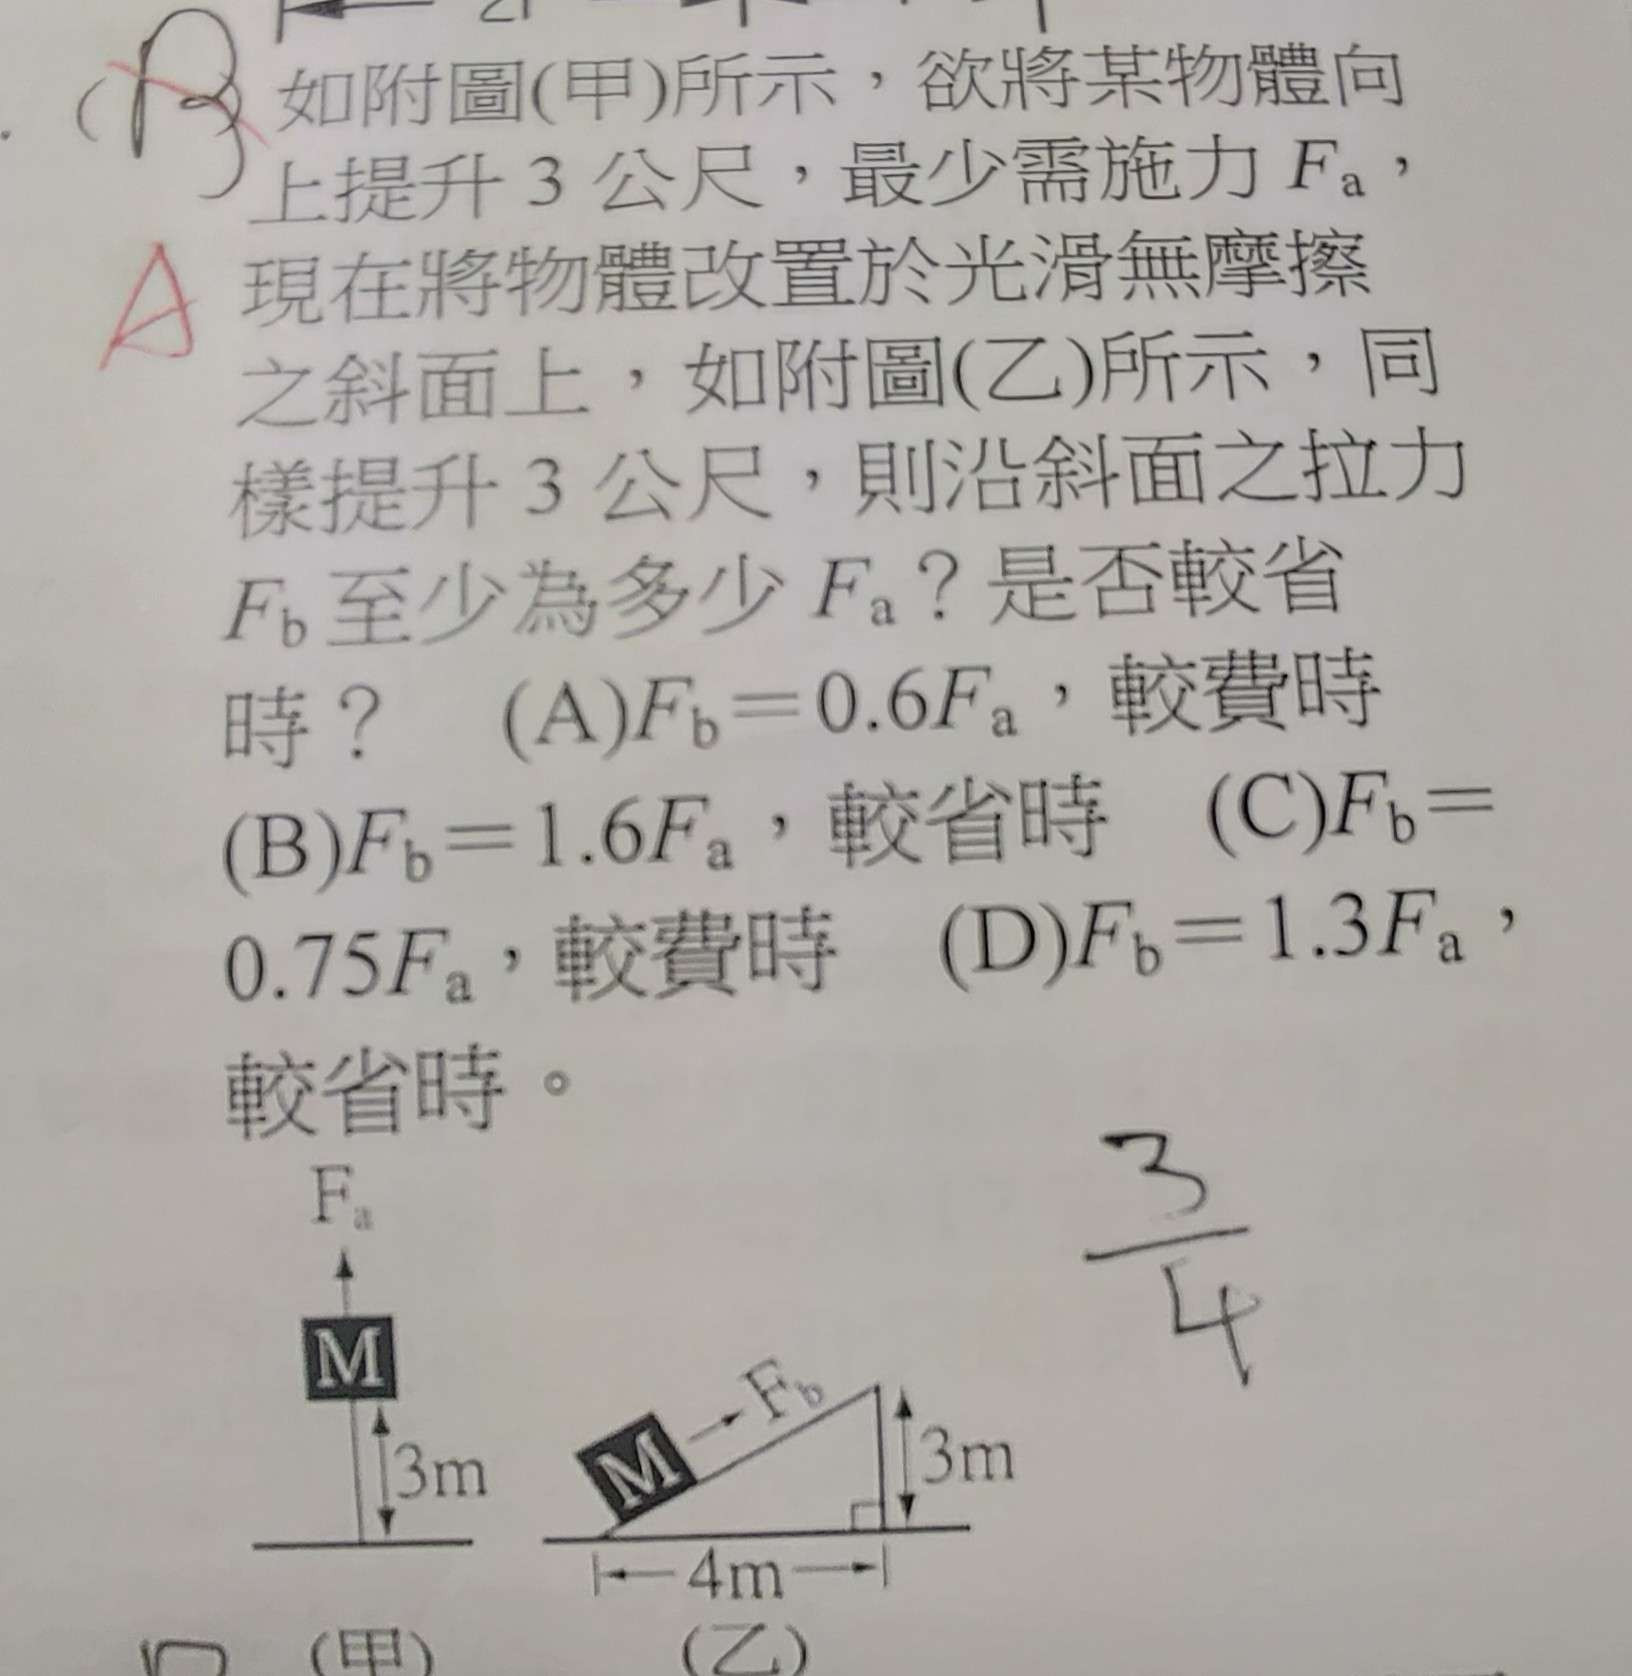 (B) 如附圖(甲)所示，欲將某物體向
上提升 3 公尺，最少需施力 Fa，
A
現在將物體改置於光滑無摩擦
之斜面上，如附圖(乙)所示，同
樣提升 3 公尺，則沿斜面之拉力
Fb 至少為多少 Fa？是否較省
時？ (A)Fb＝0.6Fa，較費時
(B)Fb＝1.6Fa，較省時 (C)Fb＝
0.75Fa，較費時 (D)Fb＝1.3Fa，
較省時。
3
4
Fa
M
3m
Fb
M
3m
4m
(甲)
(乙)